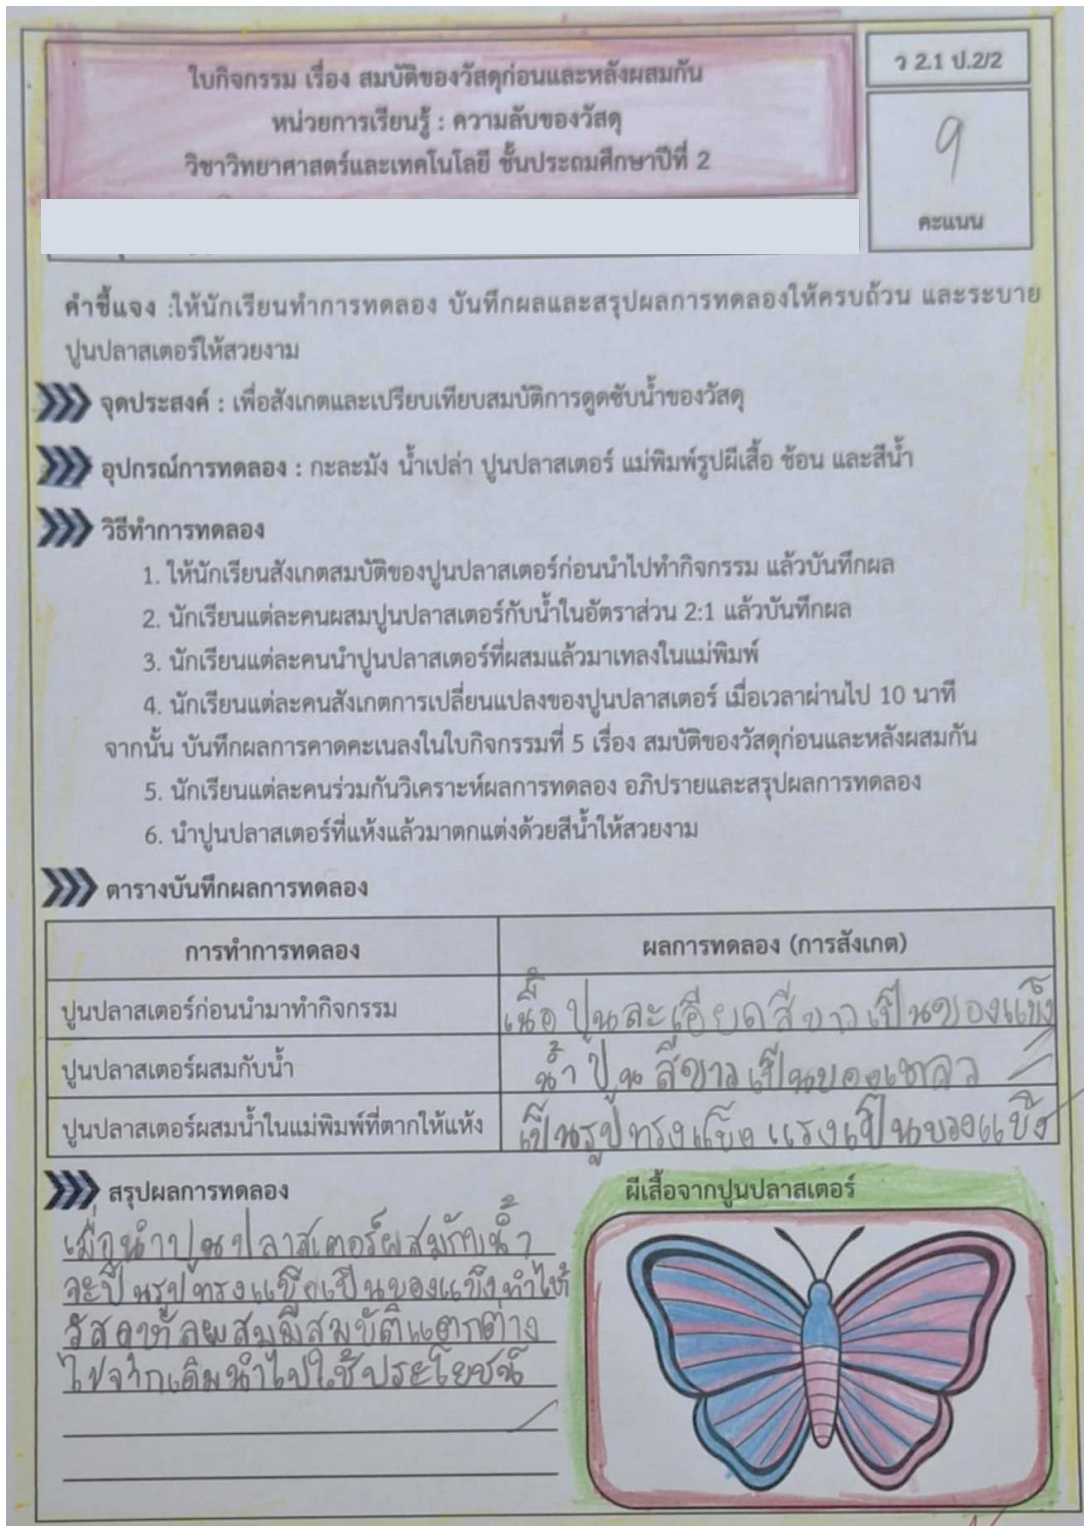 ใบกิจกรรม เรื่อง สมบัติของวัสดุก่อนและหลังผสมกัน
หน่วยการเรียนรู้ : ความลับของวัสดุ
วิชาวิทยาศาสตร์และเทคโนโลยี ชั้นประถมศึกษาปีที่ 2
ว 2.1 ป.2/2
9
คะแนน
คำชี้แจง :ให้นักเรียนทำการทดลอง บันทึกผลและสรุปผลการทดลองให้ครบถ้วน และระบาย
ปูนปลาสเตอร์ให้สวยงาม
จุดประสงค์ : เพื่อสังเกตและเปรียบเทียบสมบัติการดูดซับน้ำของวัสดุ
อุปกรณ์การทดลอง : กะละมัง น้ำเปล่า ปูนปลาสเตอร์ แม่พิมพ์รูปผีเสื้อ ช้อน และสีน้ำ
วิธีทำการทดลอง
1. ให้นักเรียนสังเกตสมบัติของปูนปลาสเตอร์ก่อนนำไปทำกิจกรรม แล้วบันทึกผล
2. นักเรียนแต่ละคนผสมปูนปลาสเตอร์กับน้ำในอัตราส่วน 2:1 แล้วบันทึกผล
3. นักเรียนแต่ละคนนำปูนปลาสเตอร์ที่ผสมแล้วมาเทลงในแม่พิมพ์
4. นักเรียนแต่ละคนสังเกตการเปลี่ยนแปลงของปูนปลาสเตอร์ เมื่อเวลาผ่านไป 10 นาที
จากนั้น บันทึกผลการคาดคะเนลงในใบกิจกรรมที่ 5 เรื่อง สมบัติของวัสดุก่อนและหลังผสมกัน
5. นักเรียนแต่ละคนร่วมกันวิเคราะห์ผลการทดลอง อภิปรายและสรุปผลการทดลอง
6. นำปูนปลาสเตอร์ที่แห้งแล้วมาตกแต่งด้วยสีน้ำให้สวยงาม
ตารางบันทึกผลการทดลอง
การทำการทดลอง ผลการทดลอง (การสังเกต)
ปูนปลาสเตอร์ก่อนนำมาทำกิจกรรม เนื้อปูนละเอียดสีขาวเป็นของแข็ง
ปูนปลาสเตอร์ผสมกับน้ำ น้ำปูนสีขาวเป็นของเหลว
ปูนปลาสเตอร์ผสมน้ำในแม่พิมพ์ที่ตากให้แห้ง เป็นรูปทรงแข็งแรงเป็นของแข็ง
สรุปผลการทดลอง
เมื่อนำปูนปลาสเตอร์ผสมกับน้ำ
จะเป็นรูปทรงแข็งเป็นของแข็งทำให้
ผสมมีสมบัติแตกต่าง
ไปจากเดิมนำไปใช้ประโยชน์
ผีเสื้อจากปูนปลาสเตอร์